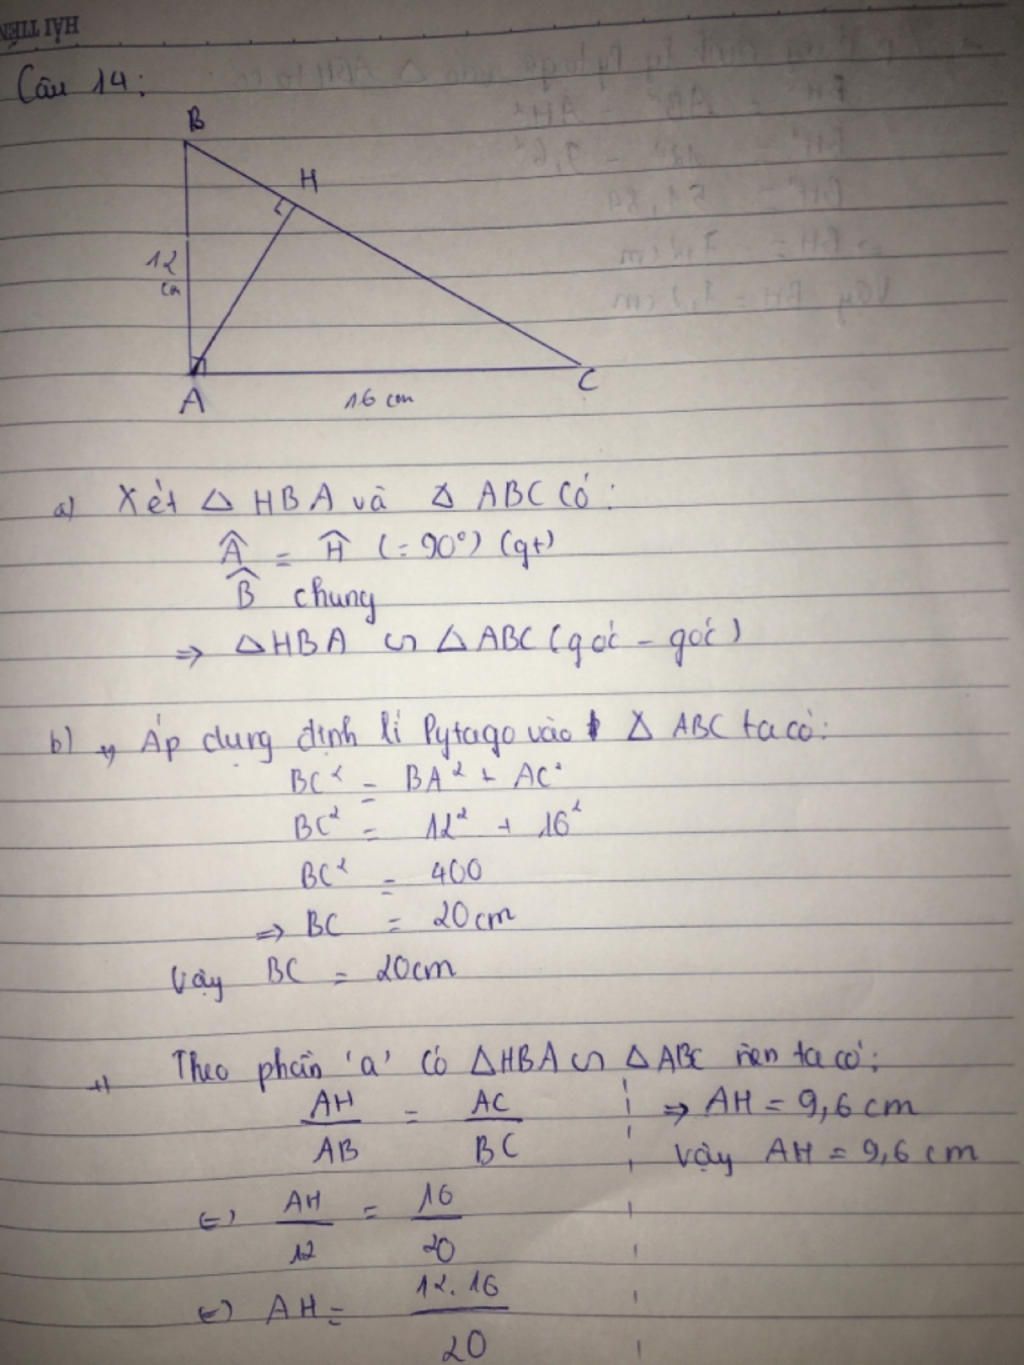 HẢI TIẾN
Câu 14:
B
H
12
cm
A
16 cm
C
a) Xét △ HBA và △ ABC có:
Â = Ĥ (= 90°) (gt)
B̂ chung
⇒ △HBA ∽ △ABC (góc - góc)
b) +) Áp dụng định lí Pytago vào △ ABC ta có:
BC² = BA² + AC²
BC² = 12² + 16²
BC² = 400
⇒ BC = 20cm
Vậy BC = 20cm
+) Theo phần 'a' có △HBA ∽ △ABC nên ta có:
AH/AB = AC/BC
⇔ AH/12 = 16/20
⇔ AH = 12.16/20
⇒ AH = 9,6 cm
Vậy AH = 9,6 cm